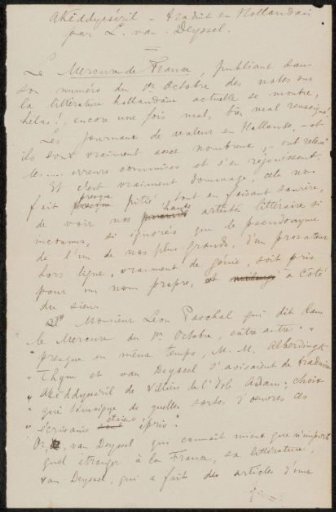 Akëdysséril – traduit en Hollandais
par L. van Deyssel.
Le Mercure de France, publiant dans
son numéro du 1er Octobre des notes sur
la littérature hollandaise actuelle se montre,
hélas! encore une fois mal, bien mal renseigné.
Les journaux de valeur en Hollande, et
ils sont vraiment assez nombreux, ont relevé
les erreurs commises et s'en réjouissent.
Et c'est vraiment dommage, cela nous
fait presque pitié, tout en faisant sourire,
de voir nos hauts artistes littéraires si
méconnus, si ignorés que le pseudonyme
de l'un de nos plus grands, d'un prosateur
hors ligne, vraiment de génie, soit pris
pour un nom propre, à côté
du sien.
Monsieur Léon Paschal qui dit dans
le Mercure du 1er Octobre, entre autre: "
" presque en même temps, M. M. Alberdingk
" Thym et van Deyssel s'avisaient de traduire
" Akëdysséril de Villiers de l'Isle Adam: choix
" qui témoigne de quelles sortes d'œuvres ces
" écrivains étaient épris!"
Or, van Deyssel qui connait mieux que n'importe
quel étranger à la France, sa littérature,
van Deyssel, qui a fait des articles d'une